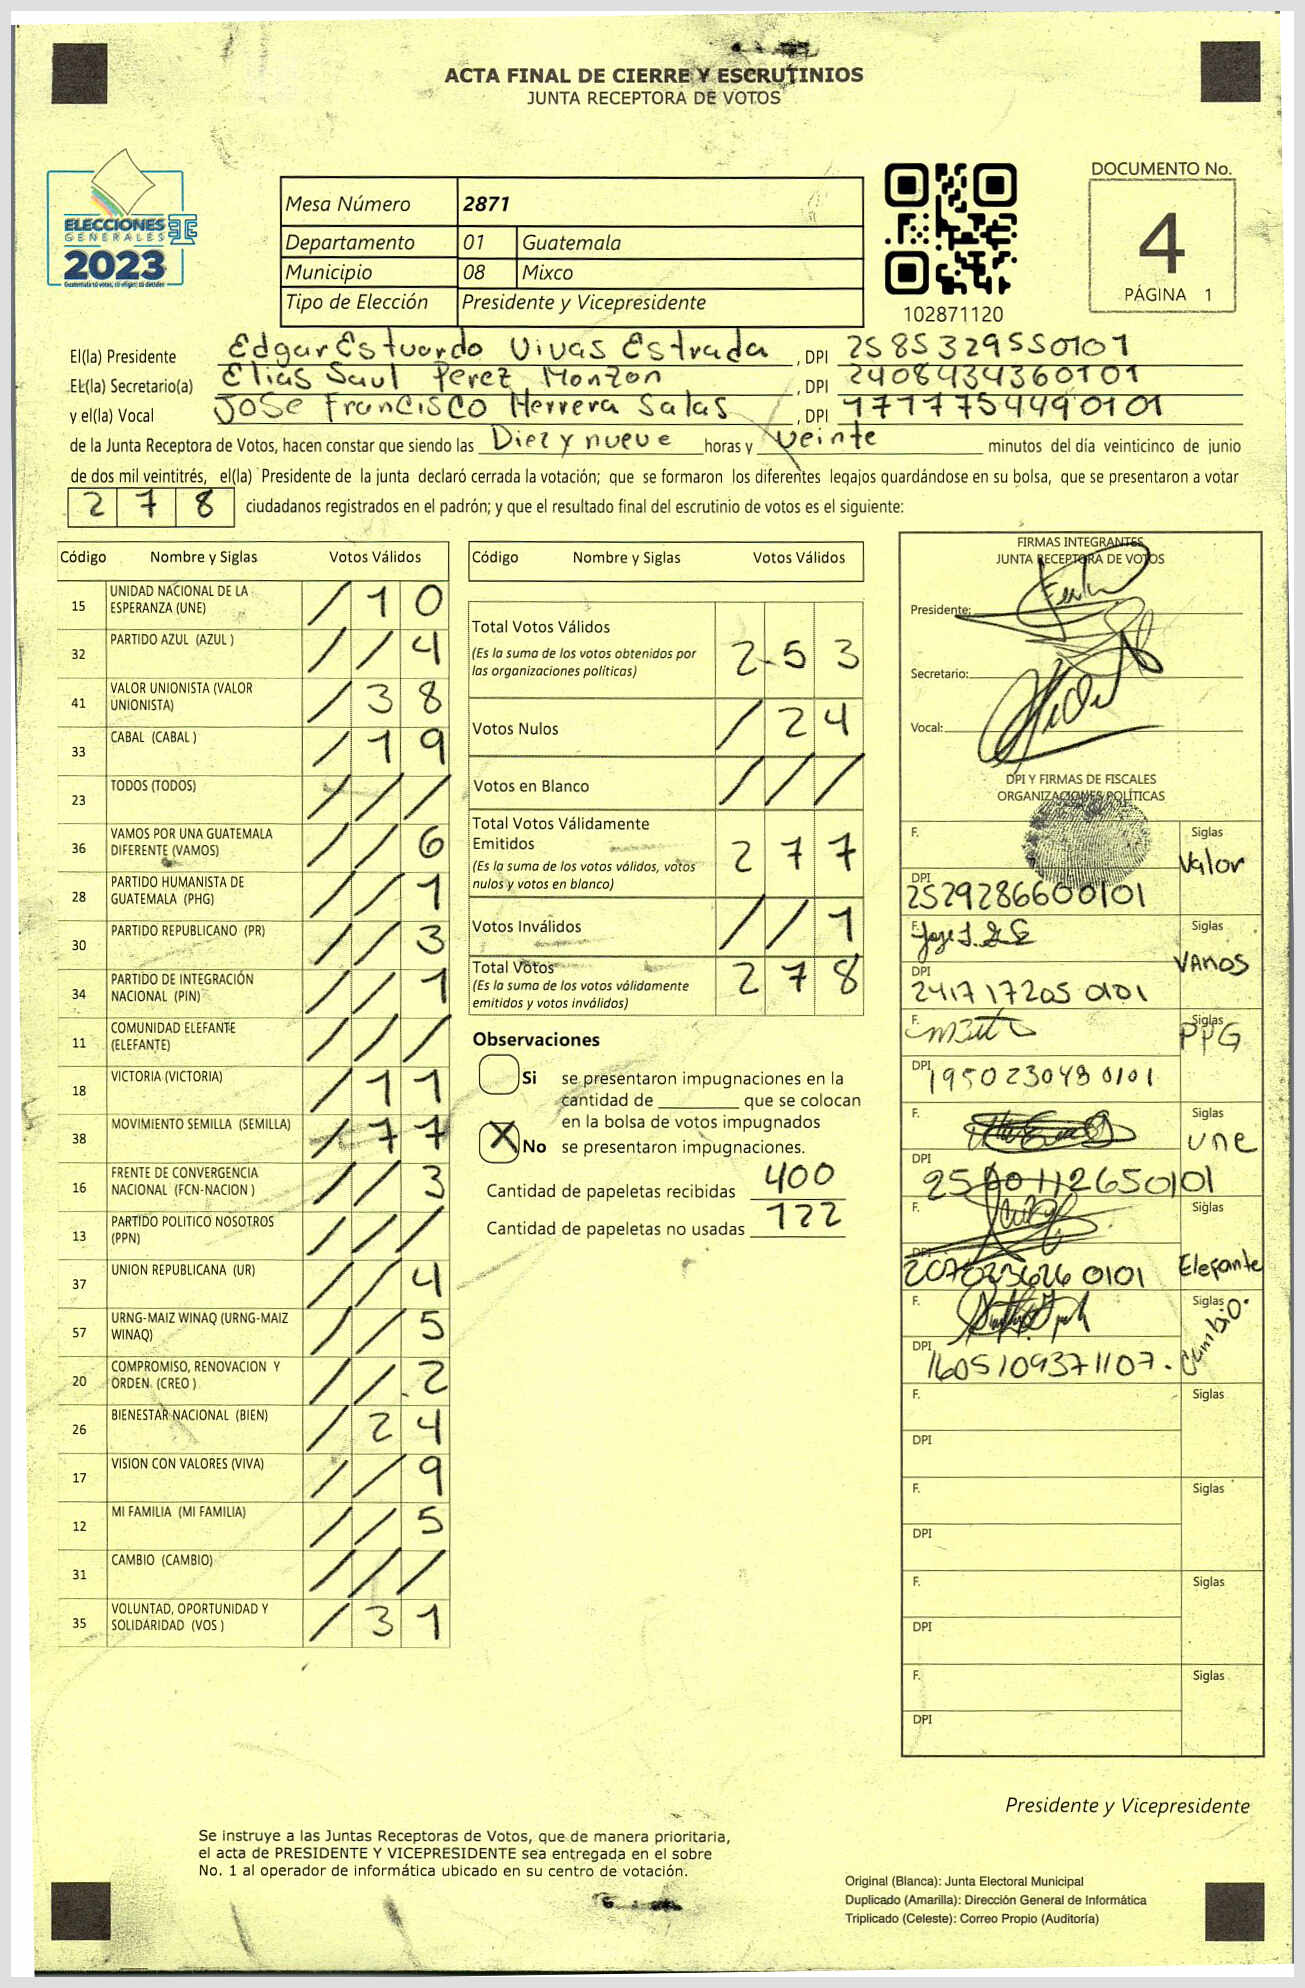 ACTA FINAL DE CIERRE Y ESCRUTINIOS
JUNTA RECEPTORA DE VOTOS
ELECCIONES
GENERALES
2023
Guatemala tú votas, tú eliges, tú decides
Mesa Número 2871
Departamento 01 Guatemala
Municipio 08 Mixco
Tipo de Elección Presidente y Vicepresidente
102871120
DOCUMENTO No.
4
PÁGINA 1
El(la) Presidente Edgar Estuardo Vivas Estrada , DPI 2585329550101
EL(la) Secretario(a) Elias Saul Perez Monzon , DPI 2408434360101
y el(la) Vocal JOSE FranCISCO Herrera Salas , DPI 1717754490101
de la Junta Receptora de Votos, hacen constar que siendo las Diez y nueve horas y veinte minutos del día veinticinco de junio
de dos mil veintitrés, el(la) Presidente de la junta declaró cerrada la votación; que se formaron los diferentes legajos guardándose en su bolsa, que se presentaron a votar
2 7 8 ciudadanos registrados en el padrón; y que el resultado final del escrutinio de votos es el siguiente:
Código Nombre y Siglas Votos Válidos
15 UNIDAD NACIONAL DE LA ESPERANZA (UNE) / 1 0
32 PARTIDO AZUL (AZUL ) / / 4
41 VALOR UNIONISTA (VALOR UNIONISTA) / 3 8
33 CABAL (CABAL ) / 1 9
23 TODOS (TODOS) / / /
36 VAMOS POR UNA GUATEMALA DIFERENTE (VAMOS) / / 6
28 PARTIDO HUMANISTA DE GUATEMALA (PHG) / / 1
30 PARTIDO REPUBLICANO (PR) / / 3
34 PARTIDO DE INTEGRACIÓN NACIONAL (PIN) / / 1
11 COMUNIDAD ELEFANTE (ELEFANTE) / / /
18 VICTORIA (VICTORIA) / 1 1
38 MOVIMIENTO SEMILLA (SEMILLA) / 7 7
16 FRENTE DE CONVERGENCIA NACIONAL (FCN-NACION ) / / 3
13 PARTIDO POLITICO NOSOTROS (PPN) / / /
37 UNION REPUBLICANA (UR) / / 4
57 URNG-MAIZ WINAQ (URNG-MAIZ WINAQ) / / 5
20 COMPROMISO, RENOVACION Y ORDEN. (CREO ) / / 2
26 BIENESTAR NACIONAL (BIEN) / 2 4
17 VISION CON VALORES (VIVA) / / 9
12 MI FAMILIA (MI FAMILIA) / / 5
31 CAMBIO (CAMBIO) / / /
35 VOLUNTAD, OPORTUNIDAD Y SOLIDARIDAD (VOS ) / 3 1
Código Nombre y Siglas Votos Válidos
Total Votos Válidos 2 5 3
(Es la suma de los votos obtenidos por
las organizaciones políticas)
Votos Nulos / 2 4
Votos en Blanco / / /
Total Votos Válidamente
Emitidos 2 7 7
(Es la suma de los votos válidos, votos
nulos y votos en blanco)
Votos Inválidos / / 1
Total Votos 2 7 8
(Es la suma de los votos válidamente
emitidos y votos inválidos)
Observaciones
Si se presentaron impugnaciones en la
cantidad de ________ que se colocan
en la bolsa de votos impugnados
X No se presentaron impugnaciones.
Cantidad de papeletas recibidas 400
Cantidad de papeletas no usadas 122
FIRMAS INTEGRANTES
JUNTA RECEPTORA DE VOTOS
Presidente:
Secretario:
Vocal:
DPI Y FIRMAS DE FISCALES
ORGANIZACIONES POLÍTICAS
F. Siglas Valor
DPI 2529286600101
F. Siglas VAMOS
DPI 2417172050101
F. Siglas PPG
DPI 1950230480101
F. Siglas Une
DPI
F. Siglas Elefante
DPI
F. Siglas Cambio.
DPI 1605109371107.
F. Siglas
DPI
F. Siglas
DPI
F. Siglas
DPI
F. Siglas
DPI
Presidente y Vicepresidente
Se instruye a las Juntas Receptoras de Votos, que de manera prioritaria,
el acta de PRESIDENTE Y VICEPRESIDENTE sea entregada en el sobre
No. 1 al operador de informática ubicado en su centro de votación.
Original (Blanca): Junta Electoral Municipal
Duplicado (Amarilla): Dirección General de Informática
Triplicado (Celeste): Correo Propio (Auditoría)